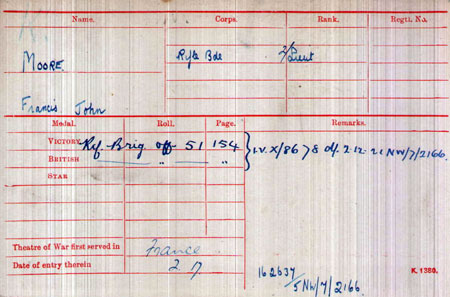 Name. Corps. Rank. Regtl. No.
MOORE. Rifle Bde 2/Lieut
Francis John
Medal. Roll. Page. Remarks.
VICTORY Rif. Brig off 51 154
BRITISH " " "
I.V. X/86 78 d/. 2.12.21 NW/7/2166.
STAR
Theatre of War first served in France
Date of entry therein 2.17
162637/5 NW/7/2166.
K. 1380.